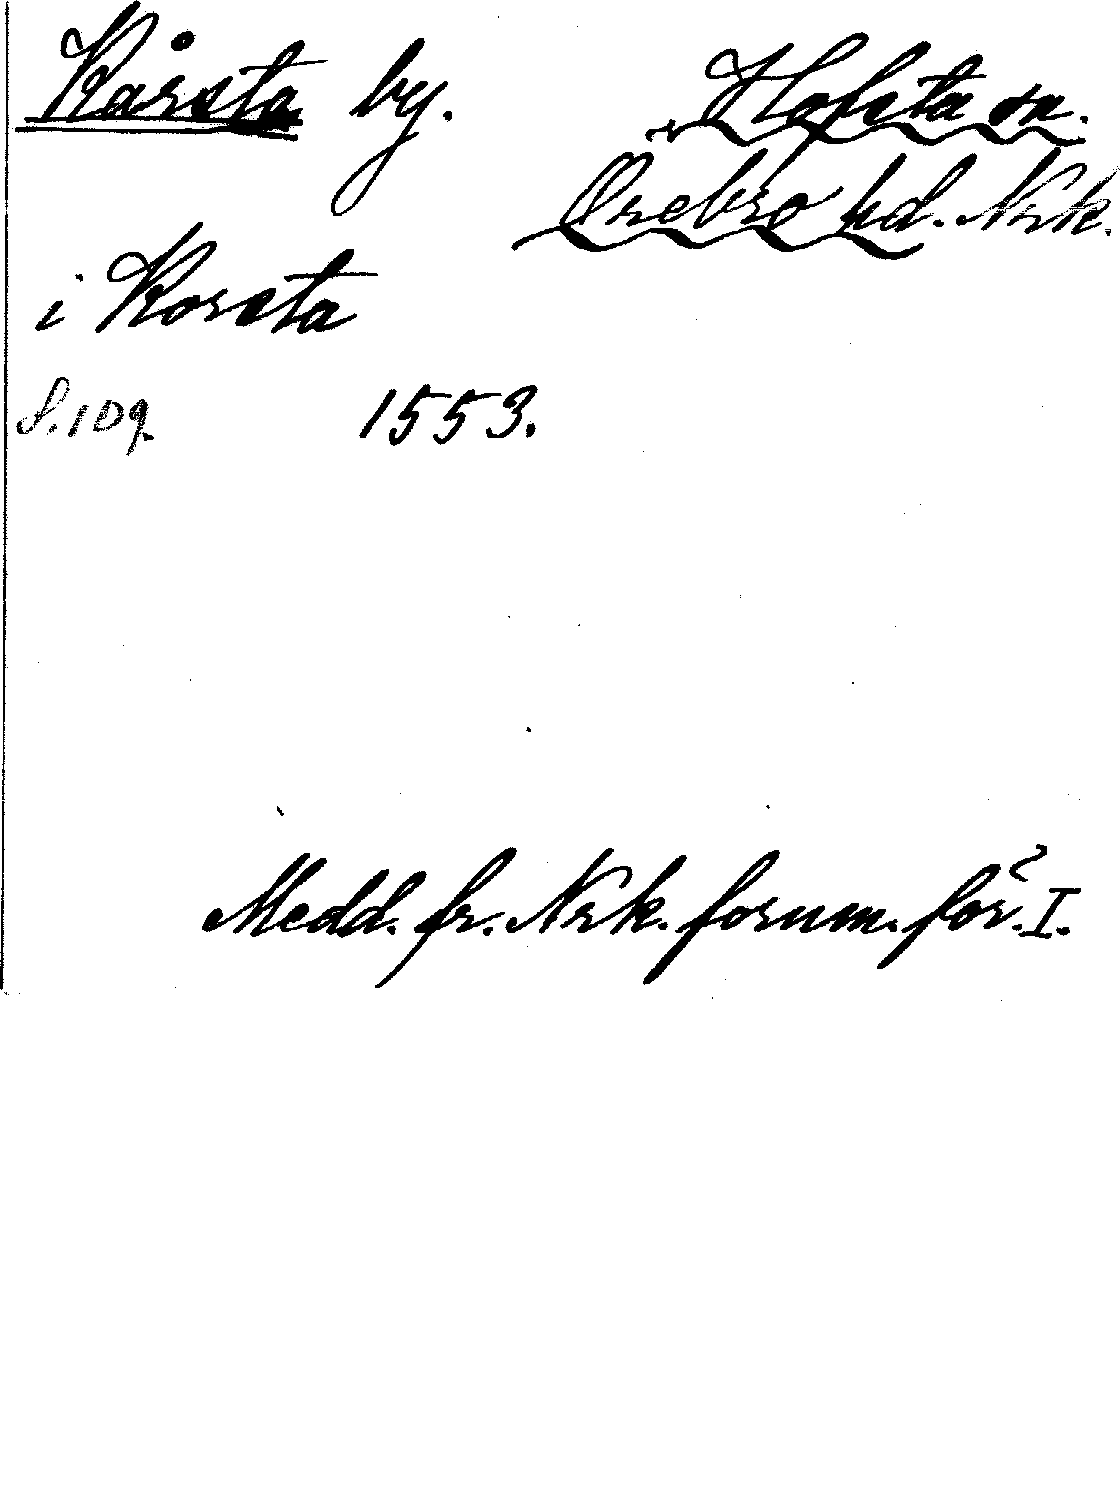 Kårsta by.
Hofsta sn.
Örebro hd. Nrk.
i Korsta
S. 109. 1553.
Medd. fr. Nrk. fornm. för. I.